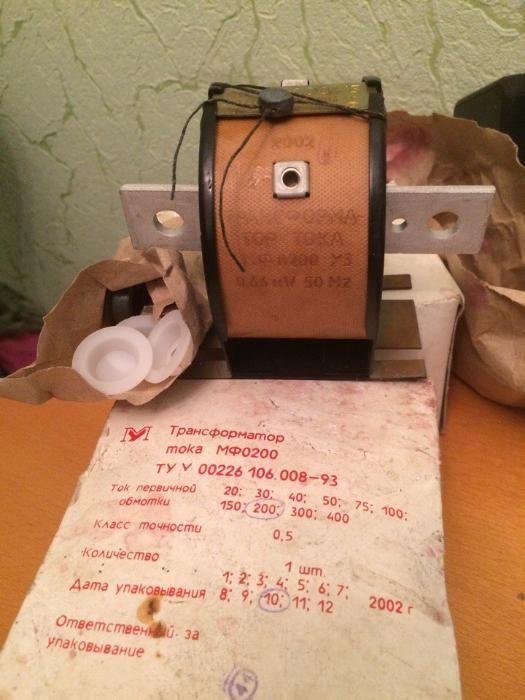 2002
ТРАНСФОРМА-
ТОР ТОКА
МФ 0200 У3
0,66 кW 50 Hz
Трансформатор
тока МФ0200
ТУ У 00226 106.008-93
Ток первичной обмотки
20; 30; 40; 50; 75; 100;
150; 200; 300; 400
Класс точности 0,5
Количество 1 шт.
Дата упаковывания
1; 2; 3; 4; 5; 6; 7;
8; 9; 10; 11; 12 2002 г
Ответственный за
упаковывание